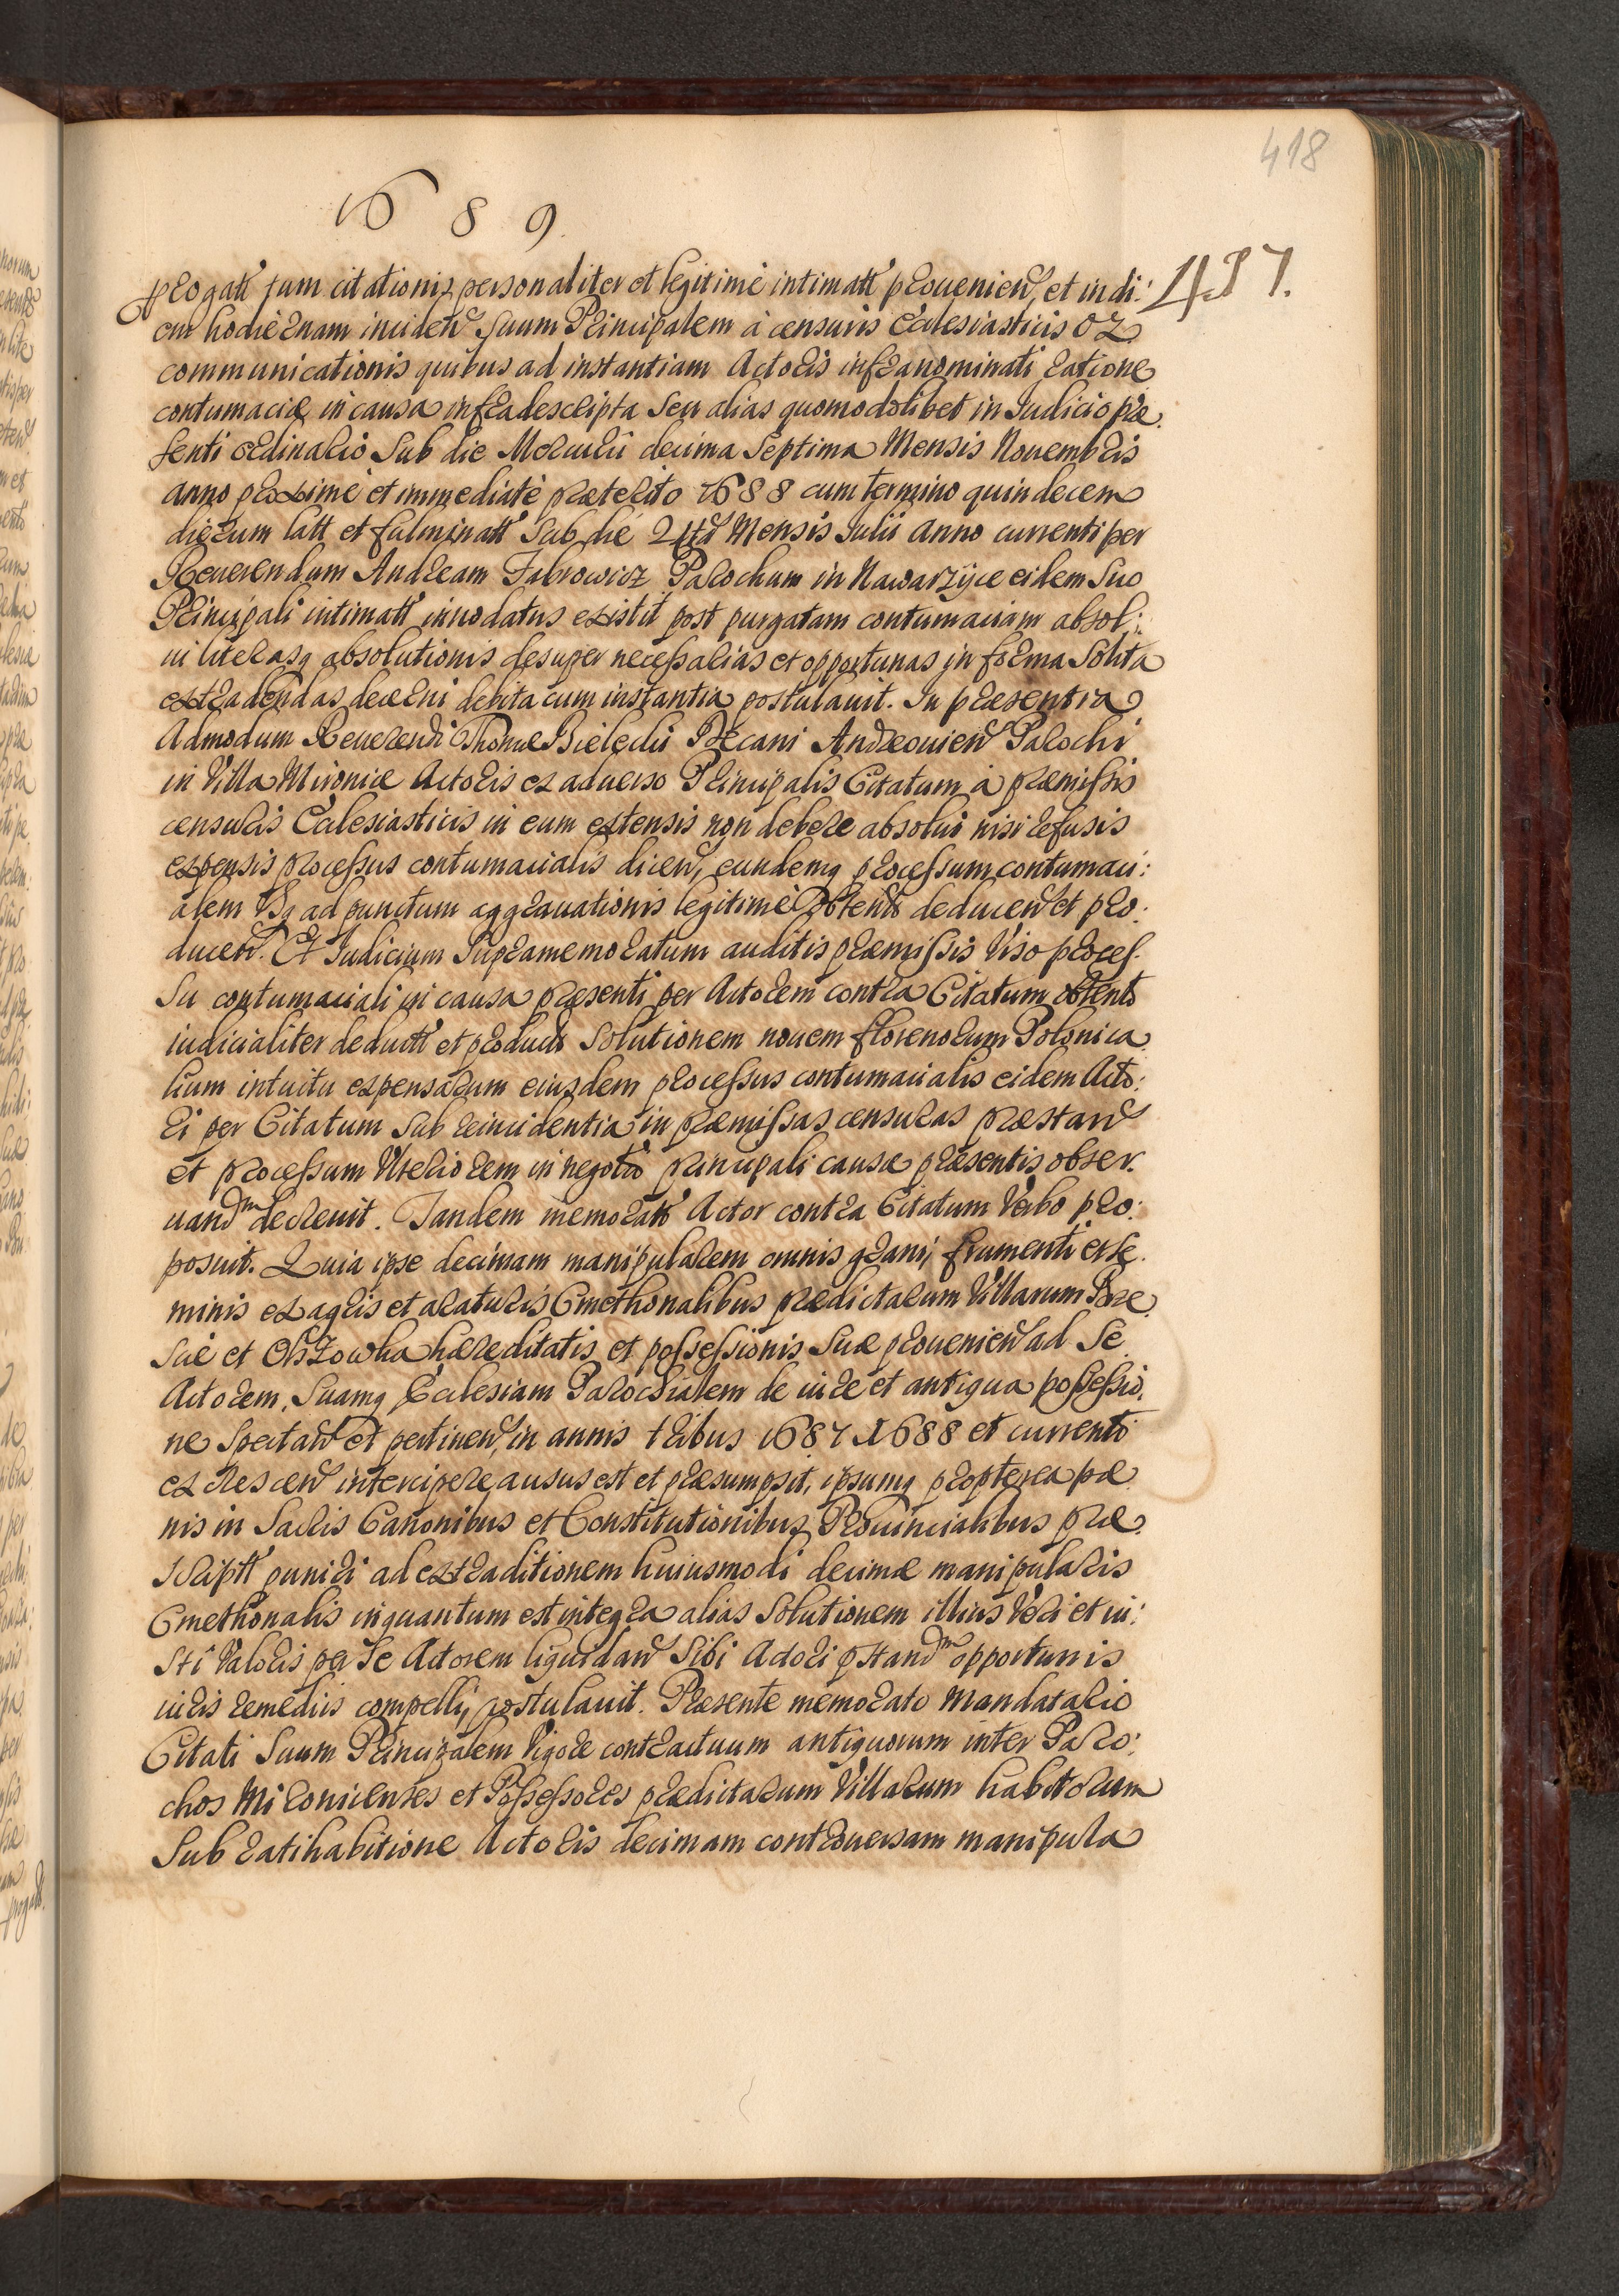 418
1689.
417.
prorogatt tum citationis personaliter et legitimé intimatt prouenien, et in di:
em hodiernam inciden Suum Principalem à censuris Ecclesiasticis ex
communicationis quibus ad instantiam Actoris infranominati ratione
contumaciæ in causa infradescripta Seu alias quomodolibet in Iudicio præ
senti ordinario Sub die Mercurii decima Septima Mensis Nouembris
anno proximé et immediaté præterito 1688 cum termino quindecem
dierum latt et fulminatt Sub die 24ta Mensis Iulii anno currenti per
Reuerendum Andream Fabrowicz Parochum in Nawarzyce eidem Suo
Principali intimatt innodatus existit post purgatam contumaciam absol:
ui literasq absolutionis desuper necessarias et opportunas in forma Solita
extradendas decerni debita cum instantia postulauit. In præsentia
Admodum Reuerendi Thomæ Bielecki Decani Andreouien Parochi
in Villa Mironice Actoris ex aduerso Principalis Citatum à præmissis
censuris Ecclesiasticis in eum extensis non debere absolui nisi refusis
expensis processus contumacialis dicen, eundemq processum contumaci:
alem Vsq ad punctum aggrauationis legitimé obtent deducen et pro:
ducen. Et Iudicium Supramemoratum auditis præmissis Viso proces
Su contumaciali in causa præsenti per Actorem contra Citatum obtento
iudicialiter deductt et product Solutionem nouem florenorum Polonica
lium intuitu expensarum eiusdem processus contumacialis eidem Acto:
ri per Citatum Sub reincidentia in præmissas censuras præstan
et processum Vlteriorem in negotio principali causæ præsentis obser.
uandm decreuit. Tandem memoratt Actor contra Citatum Verbo pro:
posuit. Quia ipse decimam manipularem omnis grani, frumenti et Se
minis ex agris et araturis Cmethonalibus prædictarum Villarum Brze
Sie et Olszowka hæreditatis et possessionis Suæ prouenien ad Se
Actorem, Suamq Ecclesiam Parochialem de iure et antiqua possessio,
ne Spectan et pertinen, in annis tribus 1687 1688 et currenti
excrescen intercipere ausus est et præsumpsit, ipsumq propterea pæ
nis in Sacris Canonibus et Constitutionibus Prouincialibus præ
scriptt puniri ad extraditionem huiusmodi decimæ manipularis
Cmethonalis inquantum est integra alias Solutionem illius Veri et iu:
Sti Valoris per Se Actorem liquidan Sibi Actori pstandm opportunis
iuris remediis compelli, postulauit. Præsente memorato Mandatario
Citati Suum Principalem Vigore contractuum antiquorum inter Paro:
chos Mironicenses et Possessores prædictarum Villarum habitorum
Sub ratihabitione Actoris decimam controuersam manipula